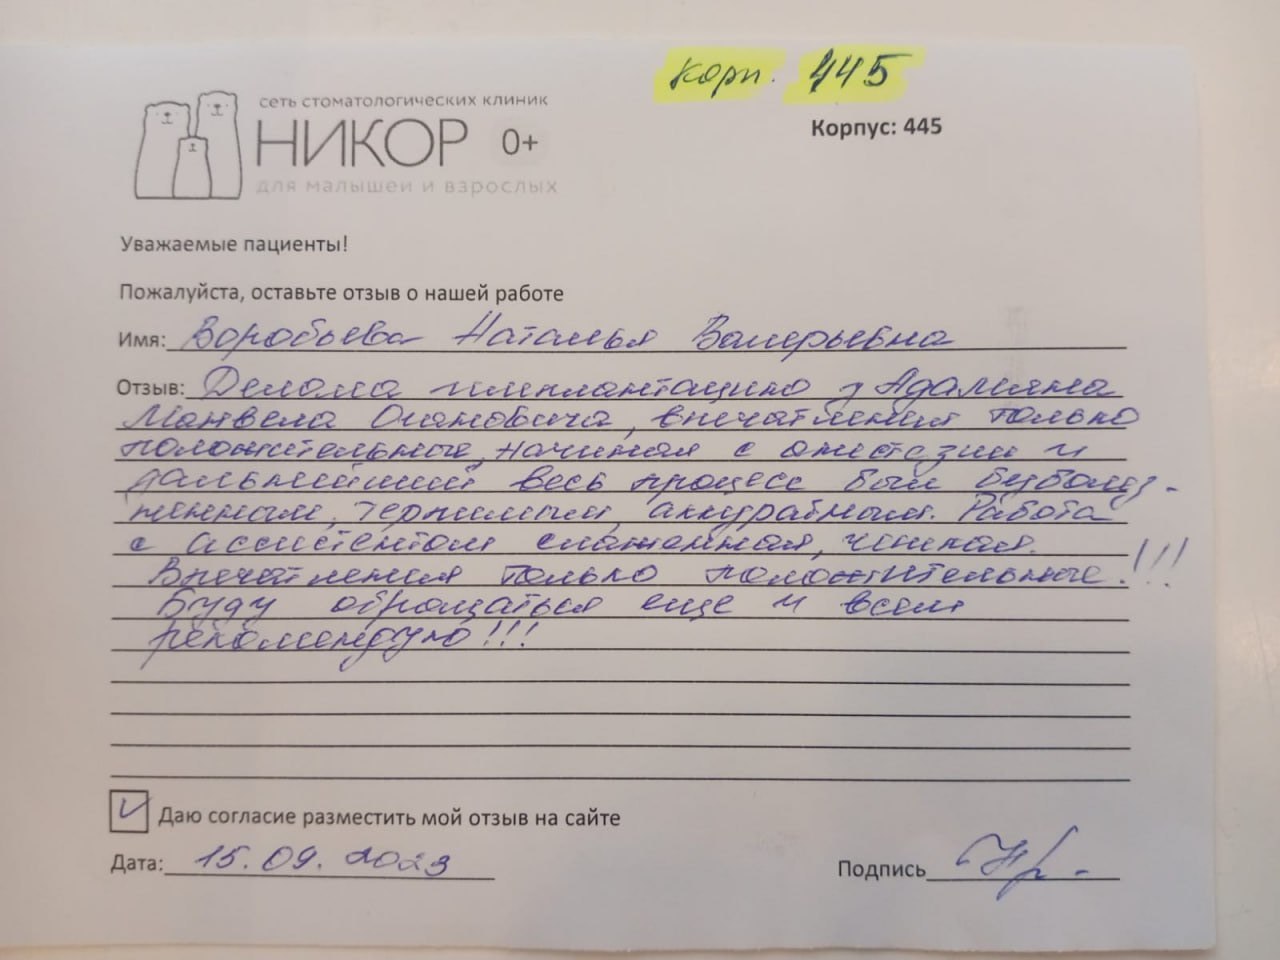 Корп. 445
сеть стоматологических клиник
НИКОР 0+
для малышей и взрослых
Корпус: 445
Уважаемые пациенты!
Пожалуйста, оставьте отзыв о нашей работе
Имя: Воробьева Наталья Валерьевна
Отзыв: Делала имплантацию у Адамяна
Манвела Оганововича, впечатления только
положительные, начиная с анестезии и
дальнейший весь процесс был безболез-
ненным, терпимым, аккуратным. Работа
с ассистентом слаженная, четкая.
Впечатления только положительные.!!!
Буду обращаться еще и всем
рекомендую!!!
Даю согласие разместить мой отзыв на сайте
Дата: 15.09.2023
Подпись